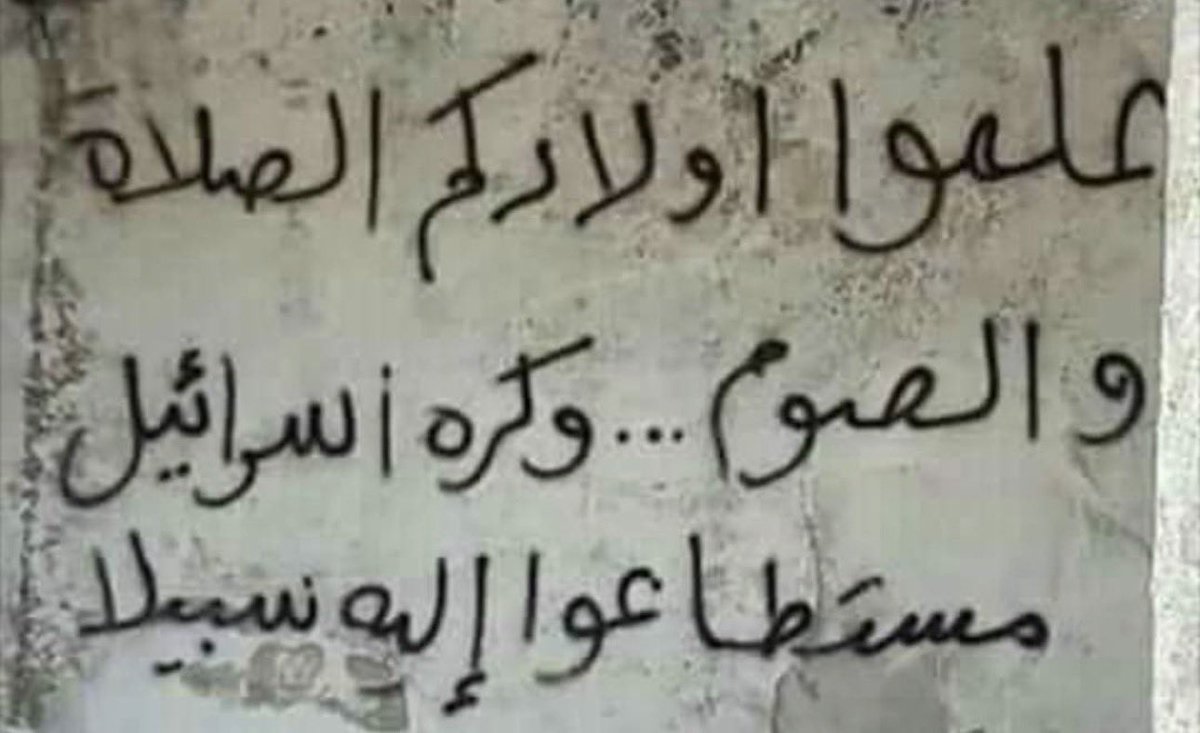 علموا اولادكم الصلاة
والصوم ... وكره أسرائيل
مستطاعوا إليه سبيلا